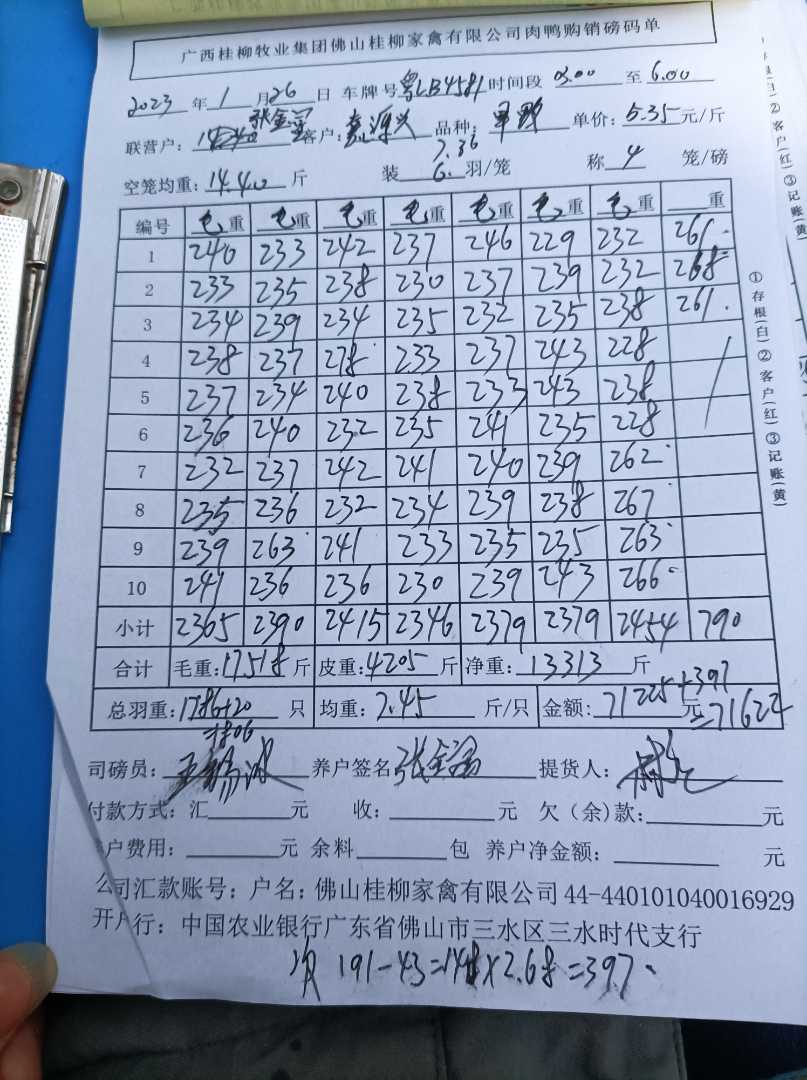 广西桂柳牧业集团佛山桂柳家禽有限公司肉鸭购销磅码单
2023 年 1 月 26 日 车牌号 粤LB4581 时间段 03.00 至 6.00
联营户: 张金 客户: 源兴 品种: 单价: 5.35 元/斤
7.36
空笼均重: 14.40 斤 装 6. 羽/笼 称 4 笼/磅
编号 毛重 毛重 毛重 毛重 毛重 毛重 毛重 重
1 240 233 242 237 246 229 232 261.
2 233 235 238 230 237 239 232 268.
3 234 239 234 235 232 235 238 261.
4 238 237 278 233 237 243 228
5 237 234 240 238 233 243 238
6 236 240 232 235 241 235 228
7 232 237 242 241 240 239 262
8 235 236 232 234 239 238 267
9 239 263 241 233 235 235 263
10 241 236 236 230 239 243 266
小计 2365 2390 2415 2346 2379 2379 2454 790
合计 毛重: 17518 斤 皮重: 4205 斤 净重: 13313 斤
总羽重: 1786+20 只 均重: 2.45 斤/只 金额: 71225+397 元
=1806 =71622
司磅员: 养户签名 张金 提货人:
付款方式: 汇 元 收: 元 欠(余)款: 元
户费用: 元 余料 包 养户净金额: 元
公司汇款账号: 户名: 佛山桂柳家禽有限公司 44-440101040016929
开户行: 中国农业银行广东省佛山市三水区三水时代支行
191-43=148×2.68=397.
①存根(白)②客户(红)③记账(黄)
②客户(红)③记账(黄)